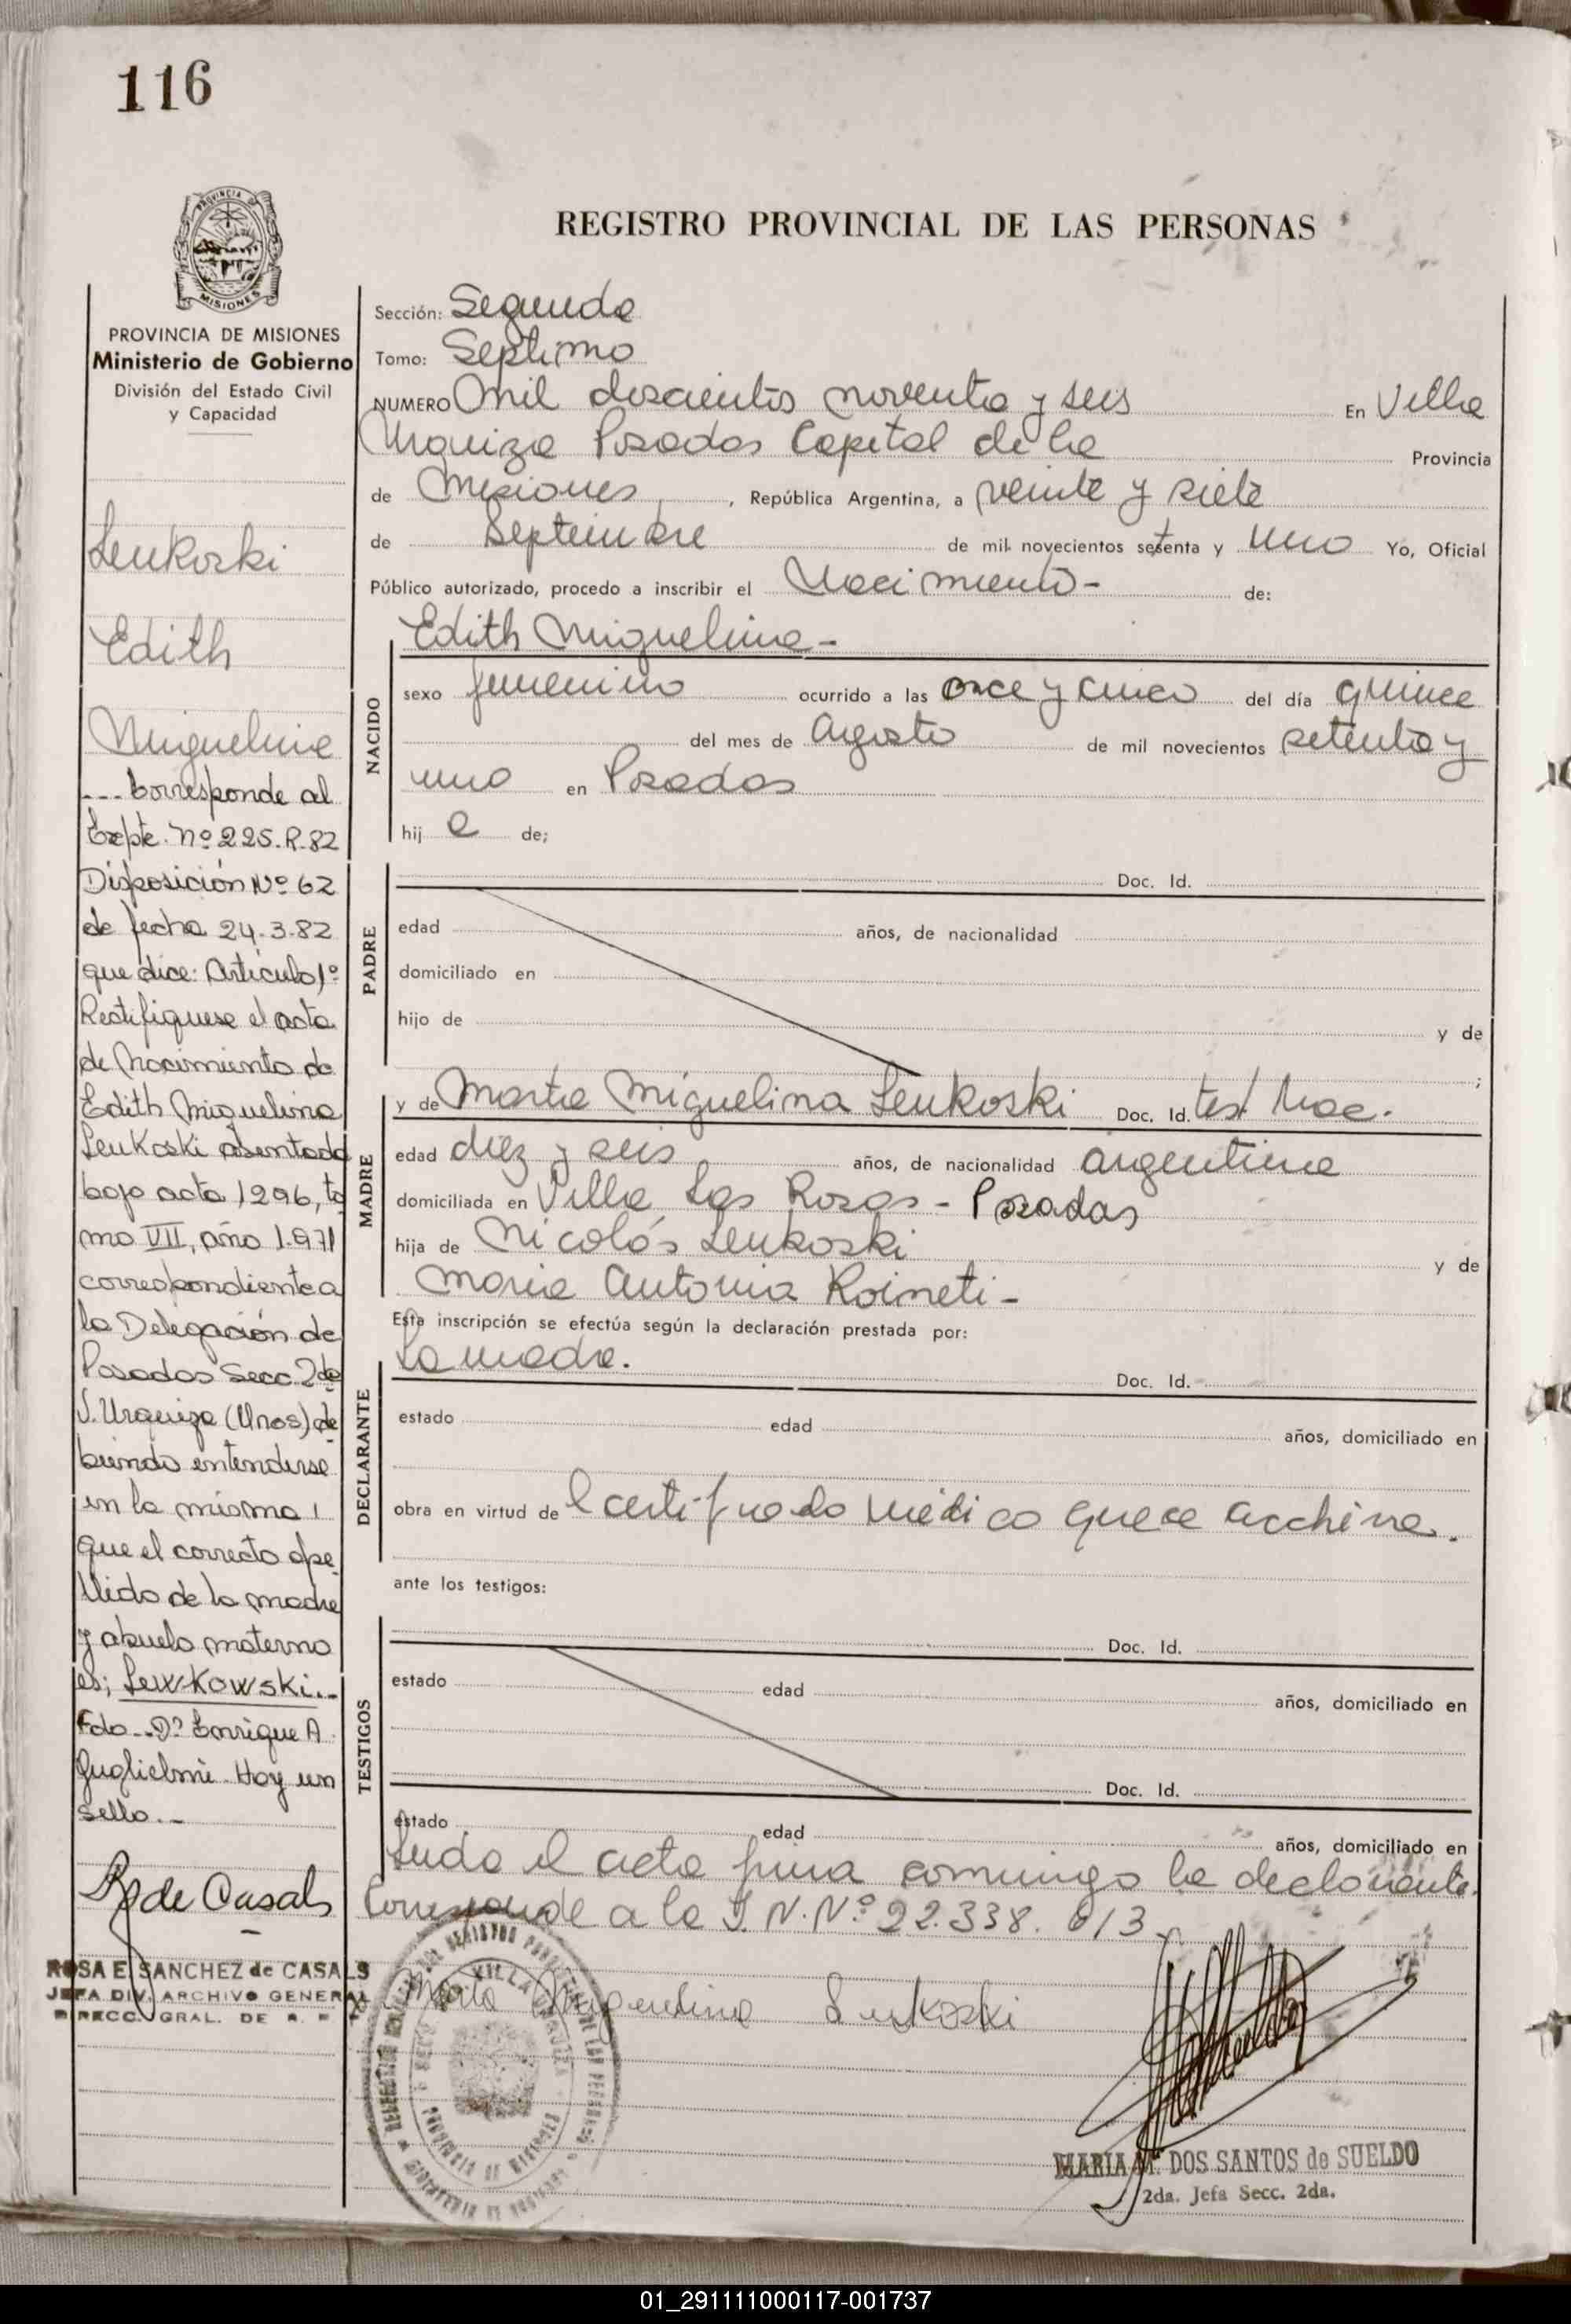 116
PROVINCIA DE MISIONES
Ministerio de Gobierno
División del Estado Civil
y Capacidad
Leukoski
Edith
Miguelina
--- Corresponde al
Expte. Nº 225.R.82
Disposición Nº 62
de fecha 24.3.82
que dice: Artículo 1º
Rectifiquese el acta
de Nacimiento de
Edith Miguelina
Leukoski asentada
bajo acta 1296, to
mo VII, año 1.971
correspondiente a
la Delegación de
Posadas Secc. 2da
V. Urquiza (Mnes) de
biendo entenderse
en la misma
que el correcto ape
llido de la madre
y abuelo materno
es; Lewkowski.-
Fdo.. Dº Enrique A.
Guglielmi. Hay un
sello.-
R de Casals
ROSA E. SANCHEZ de CASALS
JEFA DIV. ARCHIVO GENERAL
DIRECC. GRAL. DE R. P.
REGISTRO PROVINCIAL DE LAS PERSONAS
Sección: Segunda
Tomo: Septimo
NUMERO mil doscientos noventa y seis En Villa
Urquiza Posadas Capital de la Provincia
de Misiones, República Argentina, a veinte y siete
de Septiembre de mil novecientos setenta y uno Yo, Oficial
Público autorizado, procedo a inscribir el Nacimiento- de:
Edith Miguelina-
NACIDO
sexo femenino ocurrido a las once y cinco del día quince
del mes de Agosto de mil novecientos setenta y
uno en Posadas
hij a de;
PADRE
Doc. Id.
edad años, de nacionalidad
domiciliado en
hijo de y de
;
MADRE
y de Marta Miguelina Leukoski Doc. Id. test Nac.
edad diez y seis años, de nacionalidad argentina
domiciliada en Villa Las Rosas - Posadas
hija de Nicolás Leukoski y de
Maria Antonia Roineti-
Esta inscripción se efectúa según la declaración prestada por:
DECLARANTE
La madre.
Doc. Id.
estado edad años, domiciliado en
obra en virtud de l certificado médico que se archiva.
ante los testigos:
TESTIGOS
Doc. Id.
estado edad años, domiciliado en
Doc. Id.
estado edad años, domiciliado en
Leida el acta firma conmigo la declarante.
Corresponde a la I. N. Nº 22.338.613-
Marta Miguelina Leukoski
VILLA URQUIZA
PROVINCIA DE MISIONES
MARIA M. DOS SANTOS de SUELDO
2da. Jefa Secc. 2da.
01_291111000117-001737